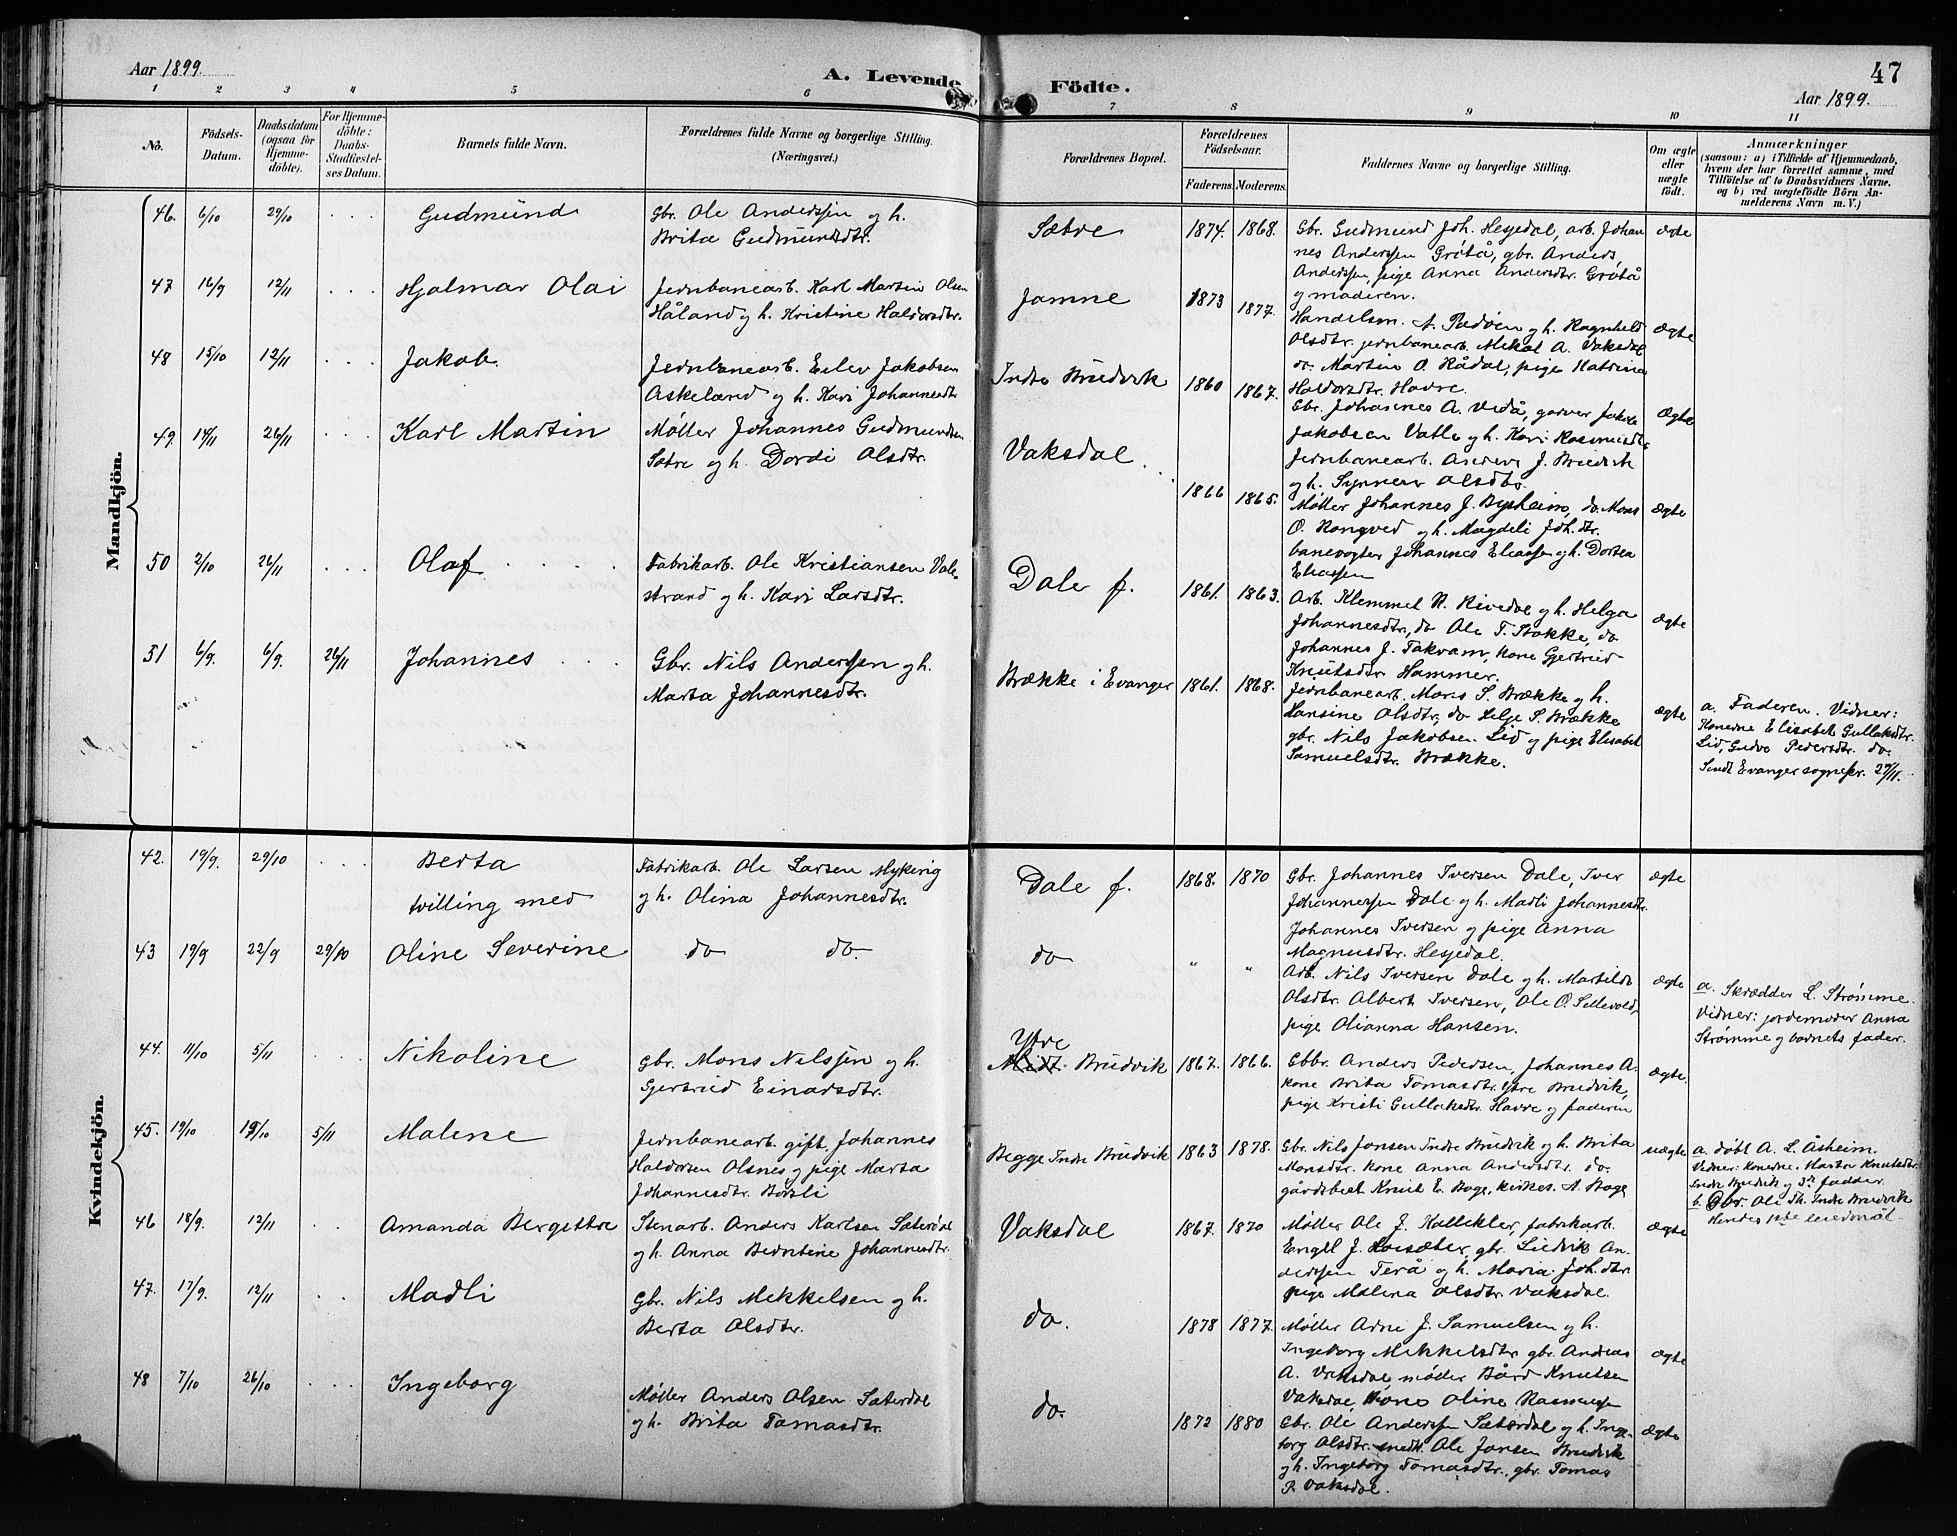 Aar 1899.
A. Levende Födte.
47
Aar 1899.
1 2 3 4 5 6 7 8 9 10 11
No.
Födsels-Datum.
Daabsdatum (ogsaa for Hjemmedöbte).
For Hjemmedöbte: Daabs-Stadfæstelses Datum.
Barnets fulde Navn.
Forældrenes fulde Navne og borgerlige Stilling. (Næringsvei.)
Forældrenes Bopæl.
Forældrenes Födselsaar.
Faderens. Moderens.
Faddernes Navne og borgerlige Stilling.
Om ægte eller uægte födt.
Anmærkninger
(saasom: a) i Tilfælde af Hjemmedaab,
hvem der har forrettet samme, med
Tilföielse af to Daabsvidners Navne,
og b) ved uægtefödte Börn An-
melderens Navn m. V.)
Mandkjön.
46. 6/10 29/10 . . . Gudmund
Gbr. Ole Anderssen og h.
Brita Gudmundsdtr.
Sætre 1874. 1868.
Gbr. Gudmund Joh. Hesjedal, arb. Johan
nes Anderssen Grötå, gbr. Anders
Anderssen, pige Anna Andersdtr. Grötå
og moderen.
ægte
47 16/9 12/11 . . . Hjalmar Olai
Jernbanearb. Karl Martin Olsen
Håland og h. Kristine Haldorsdtr.
Jamne 1873 1877.
Handelsm. A. Pedøen og h. Ragnhild
Olsdtr. jernbanearb. Mikal A. Vaksdal
do. Martin O. Rådal, pige Katrina
Haldorsdtr. Havre.
ægte
48 15/10 12/11 . . . Jakob
Jernbanearb. Eilev Jakobsen
Askeland og h. Kari Johannesdtr
Indre Brudvik 1860 1867.
Gbr. Johannes A. Vedå, garver Jakob
Jakobsen Vatle og h. Kari Rasmusdtr.
Jernbanearb. Anders J. Brudvik
og h. Synneva Olsdtr.
ægte
49. 14/11 26/11 . . . Karl Martin
Møller Johannes Gudmundsen
Sætre og h. Dordi Olsdtr.
Vaksdal 1866 1865.
Møller Johannes J. Bysheim, do. Mons
O. Rongved og h. Magdeli Joh.dtr.
banevogter Johannes Eliassen og h. Dortea
Eliassen
ægte
50 2/10 26/11 . . . Olaf
Fabrikarb. Ole Kristiansen Vale-
strand og h. Kari Larsdtr.
Dale f. 1861. 1863.
Arb. Klemmet N. Rivedal og h. Helga
Johannesdtr, do Ole T. Stokke, do
Johannes J. Takvam, kone Gjertrud
Knutsdtr. Hammer.
ægte
51 6/9. 6/9. 26/11 Johannes
Gbr. Nils Anderssen og h.
Marta Johannesdtr.
Brække i Evanger 1861. 1868.
Jernbanearb. Mons S. Brække og h.
Hansine Olsdtr, do Helje S. Brække
gbr. Nils Jakobsen Lid og pige Elisabet
Samuelsdtr. Brække.
ægte
a. Faderen. Vidner:
Konerne Elisabet Gullaksdtr.
Lid, Gudve Pedersdtr. do.
Sendt Evanger sognepr. 27/11.
Kvindekjön.
42. 19/9. 29/10 . . . Berta
tvilling med
Fabrikarb. Ole Larsen Myking
og h. Olina Johannesdtr.
Dale f. 1868. 1870
Gbr. Johannes Iversen Dale, Iver
Johannessen Dale og h. Madli Johannesdtr.
Johannes Iversen og pige Anna
Magnusdtr. Hesjedal.
ægte
43 19/9 22/9 29/10 Oline Severine
do do.
do " "
Arb. Nils Iversen Dale og h. Martilda
Olsdtr. Albert Iversen, Ole O. Sellevold,
pige Olianna Hansen.
ægte
a. Skrædder L. Strømme.
Vidner: jordemoder Anna
Strømme og barnets fader.
44. 11/10 5/11 Nikoline
Gbr. Mons Nilssen og h.
Gjertrud Einarsdtr.
Ytre
Midt Brudvik 1867. 1866.
Gbbr. Anders Pedersen, Johannes A.
kone Brita Tomasdtr. Ytre Brudvik,
pige Kristi Gullaksdtr. Havre og faderen
ægte.
45. 19/10 19/10 5/11 Malene
Jernbanearb. gift Johannes
Haldorsen Olsnes og pige Marta
Johannesdtr. Børsli
Begge Indre Brudvik 1863 1878.
Gbr. Nils Jonsen Indre Brudvik og h. Brita
Monsdtr. kone Anna Andersdtr. do.
gårdsbest Knut E. Boge, kirkes. A. Boge
uægte
a. døbt A. L. Åsheim.
Vidner: konerne Marta Knutsdtr.
Indre Brudvik og 3die fadder.
b. Gbr. Ole Th. Indre Brudvik
Hendes 1ste leiermål.
46 18/9. 12/11 . . Amanda Bergitte
Stenarb. Anders Karlsen Sæterdal
og h. Anna Berntine Johannesdtr.
Vaksdal 1867. 1870
Møller Ole J. Kallekler, fabrikarb.
Engel J. Hoisæter, gbr. Ludvik An-
derssen Terå og h. Maria Joh.dtr.
pige Malena Olsdtr. Vaksdal.
ægte
47. 17/9. 12/11 . . Madli
Gbr. Nils Mikkelsen og h.
Berta Olsdtr.
do. 1878 1877.
Møller Arne J. Samuelsen og h.
Ingeborg Mikkelsdtr gbr. Andreas
A. Vaksdal, møller Bård Knutsen
Vaksdal, kone Oline Rasmussen
ægte
48 7/10 26/10 . . . Ingeborg
Møller Anders Olsen Sæterdal
og h. Brita Tomasdtr.
do. 1872 1880
Gbr. Ole Anderssen Sæterdal og h. Inge-
borg Olsdtr. smedk. Ole Jonsen Brudvik
og h. Ingeborg Tomasdtr. gbr. Tomas
P. Vaksdal.
ægte